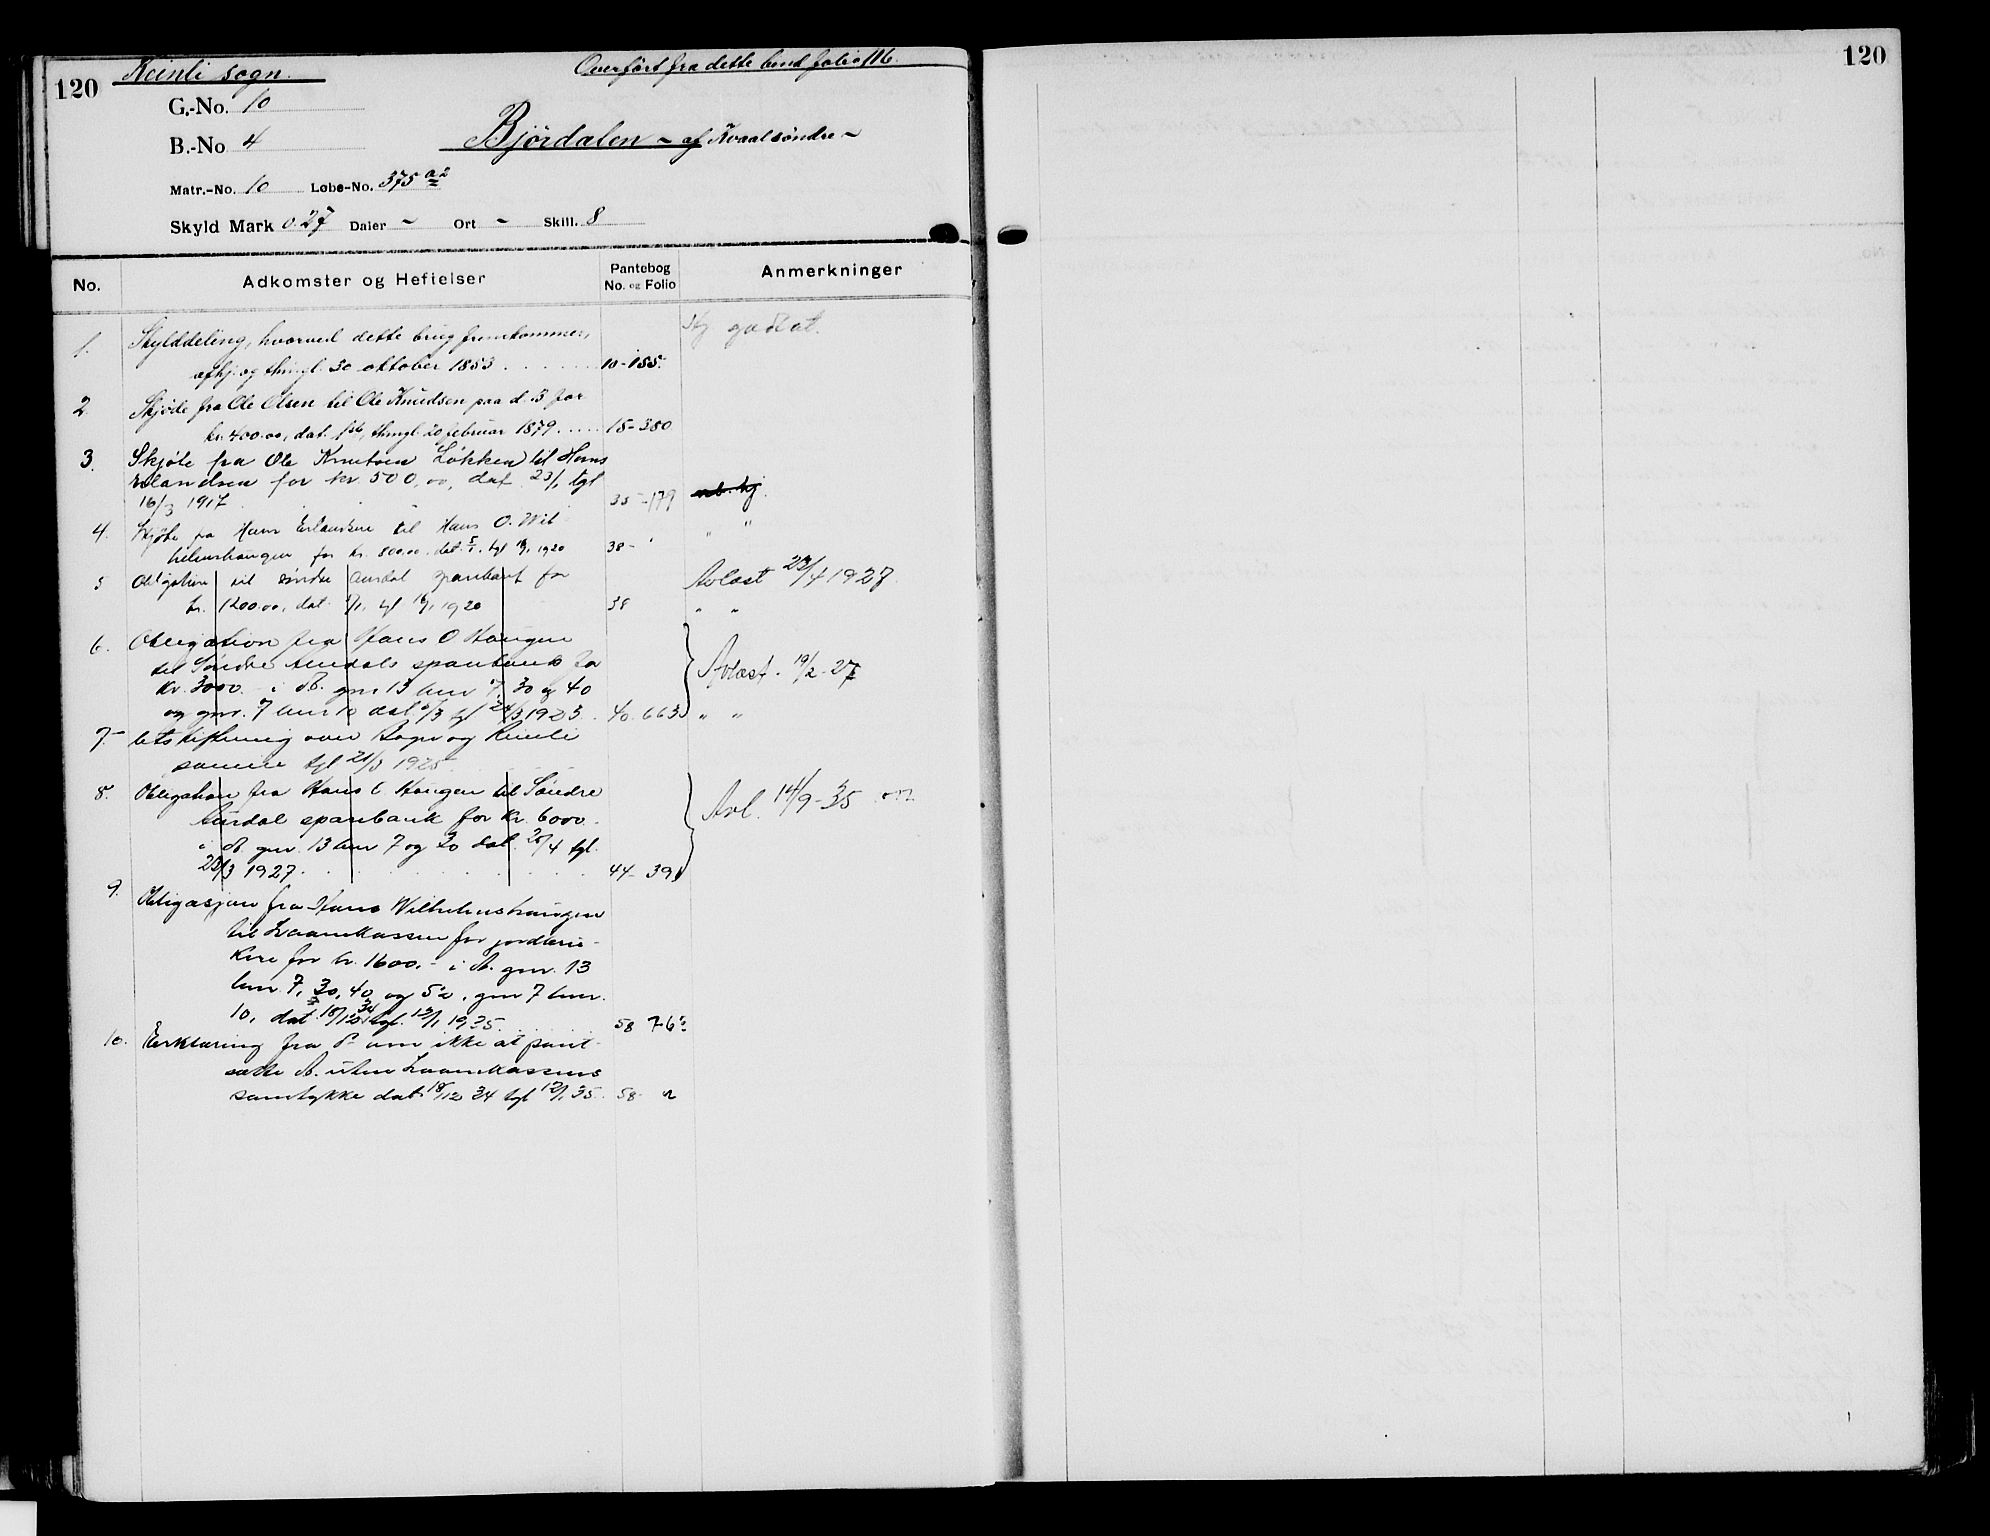 120
Reinli sogn.
Overført fra dette bind folio 116.
120
G.-No. 10
B.-No 4
Bjørdalen - af Kvaal søndre -
Matr.-No. 10 Løbe-No. 375 a2
Skyld Mark 0.27 Daler - Ort - Skill. 8
No. Adkomster og Heftelser Pantebog No. og Folio Anmerkninger
1. Skylddeling, hvorved dette brug fremkommer,
afhj. og thingl. 30 oktober 1853 10-155.
2 Skjøde fra Ole Olsen til Ole Knudsen paa d. 3 for
kr. 400.00, dat. 1ste, thingl. 20 februar 1879 15-380
3. Skjøte fra Ole Knutsen Løkken til Hans
Erlandsen for kr. 500,00, dat. 23/1 tgl
16/3 1917 35-179
4. Skjøte fra Hans Erlandsen til Hans O. Wil-
helmshaugen for kr. 800.00. dat. 5/1. tgl 1920 38-
" "
5 Obligation til søndre Aurdal sparebank for Avlæst 23/4 1927.
kr. 1200.00, dat. tgl 1920 38 " "
6. Obligation fra Hans O Haugen
til Søndre Aurdals sparebank for
kr. 3000.- i d. gnr 13 bnr 7, 30 og 40 Avlæst. 19/2-27
og gnr. 7 bnr 10 dat /3 tgl 24/3 1923. 40. 663 " "
7. Utskiftning over Bagn og Reinli
sameie tgl 21/3 1925
8. Obligation fra Hans O Haugen til Søndre
Aurdal sparebank for kr. 6000.- Avl. 14/9-35
i d. gnr. 13 bnr 7 og 30 dat. 20/4 tgl.
23/3 1927. 44- 391
9. Obligasjon fra Hans Wilhelmshaugen
til Laanekassen for jordbru-
kere for kr. 1600.- i d. gnr. 13
bnr. 7, 30, 40 og 52, gnr 7 bnr.
10, dat. 18/12 34 tgl. 12/1 1935 58 765
10. Erklæring fra d- om ikke at pant-
sætte d. uten Laanekassens
samtykke dat 18/12 34 tgl 12/1 35. 58- "